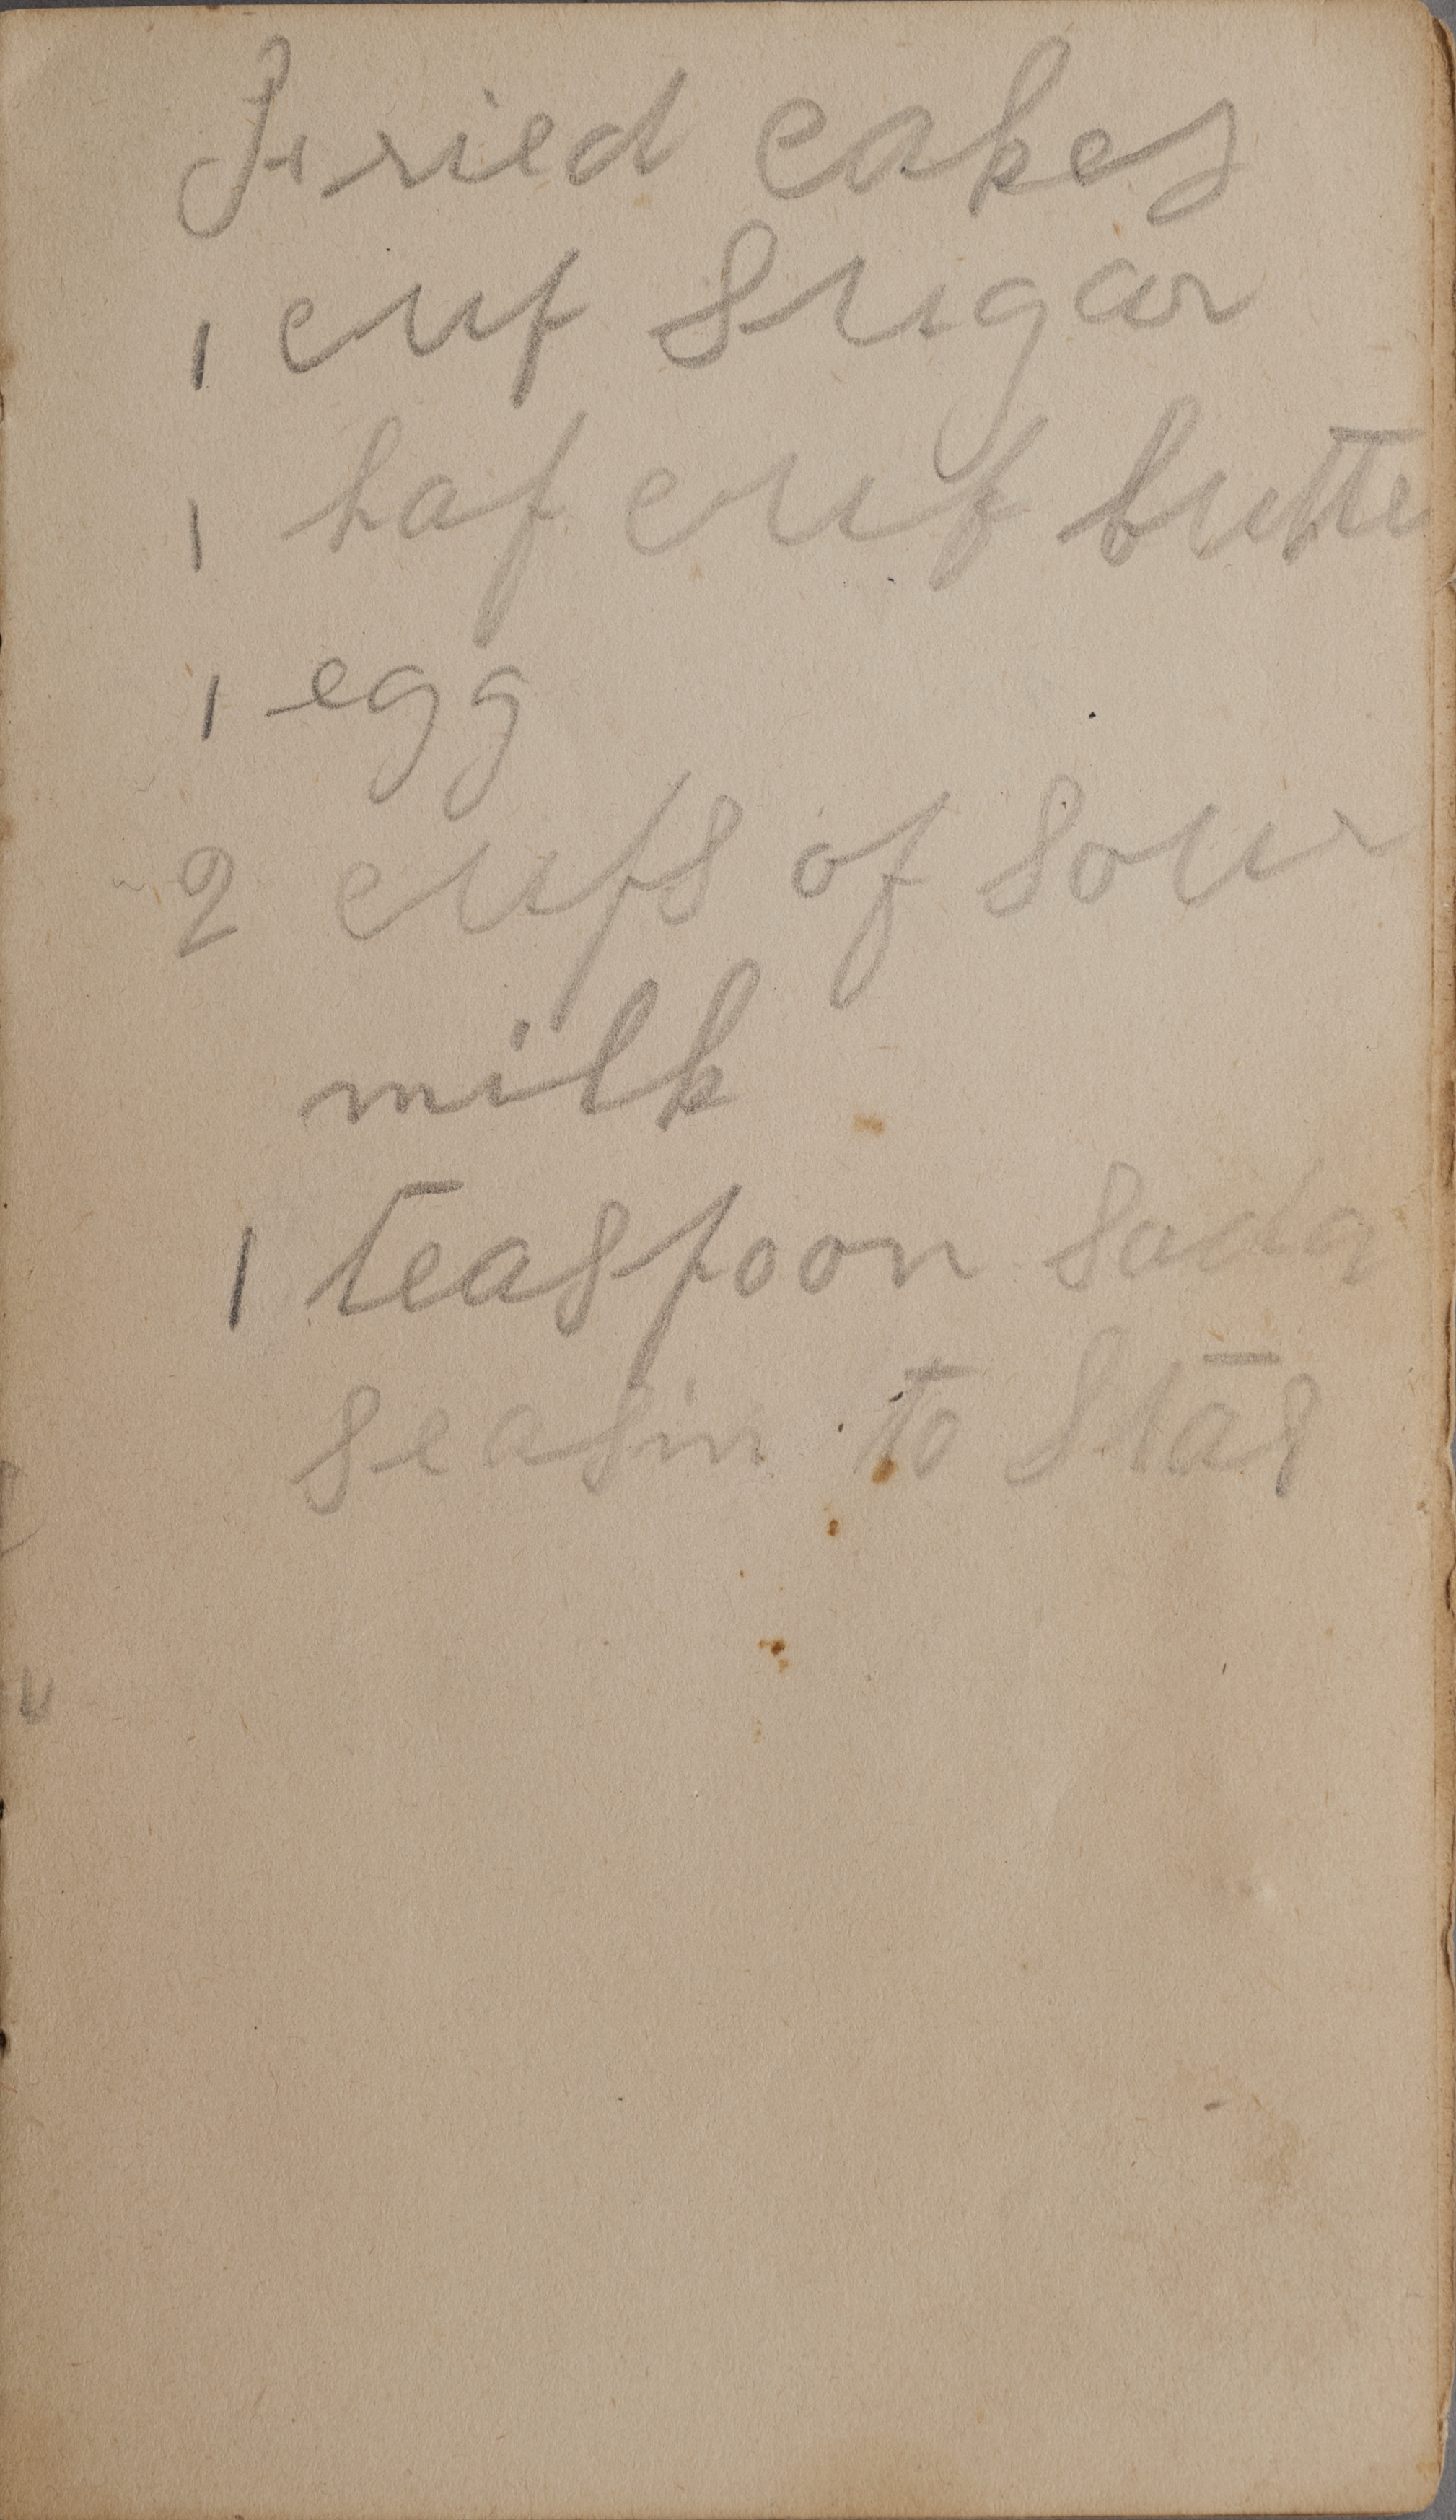 Fried cakes
1 cup Sugar
1 haf cup butte
1 egg
2 cups of Sour
milk
1 teaspoon Soda
Seasin to Stas